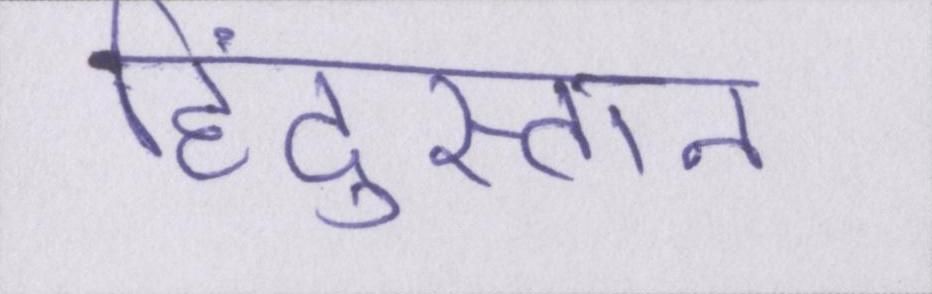 हिंदुस्तान